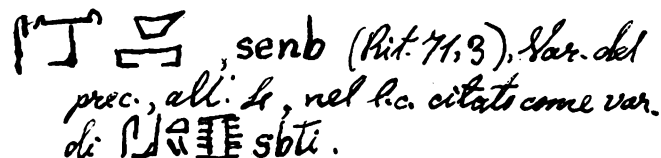 , senb (Rit. 71, 3), Var. del
prec., all. 4, nel l.c. citato come var.
di sbti.